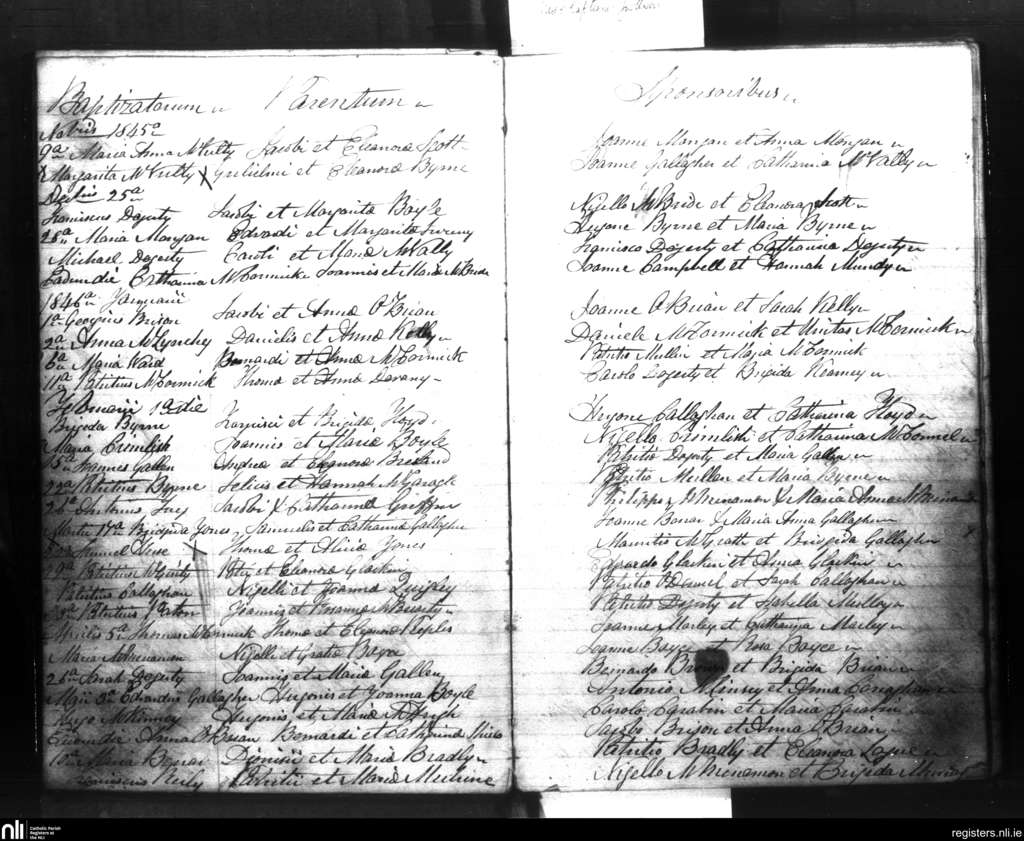 Baptizatorum Parentum
9bris 1845
9a Maria Anna McVulty Jacobi et Eleanora Scott
Margarita McVulty Gulielmi et Eleanora Byrne
25a
Franciscus Dogerty Jacobi et Margarita Boyle
28a Maria Mongan Edvardi et Margarita Sweeny
Michael Dogerty Caroli et Maria McVally
Eadem die Catharina McCormick Joannis et Maria McBride
1846 Januarii
1a Georgius Brison Jacobi et Anna O'Brian
2a Anna McLynchey Danielis et Anna Kelly
6a Maria Ward Bernardi et Anna McCormick
11a Patritius McCormick Thoma et Anna Devany
Februarii 1a die
Brigida Byrne et Brigida Floyd
Maria Crimlisk Joannis et Maria Boyle
Joannes Gallen Andrea et Eleanora Breslind
Patritius Byrne Felicis et Hannah McGaragle
Jacobi & Catharina Griffin
Martii 17a Brigida Jones, Samuelis et Catharina Gallagher
Thoma et Alicia Jones
Patritius et Eleanora Glackin
Patritius Callaghan Nigelli et Joanna Quigley
Patritius Joannis et Rosanna
Aprilis 5a Thomas McCormick Thoma et Eleanora Peoples
Maria McMenamon Nigelli et Gratia Boyce
25a Sarah Dogerty Joannis et Maria Gallen
Maii 3a Edvardus Gallagher Hugonis et Joanna Boyle
Hugo McKinney Hugonis et Maria McHugh
Eadem die Anna O'Brian Bernardi et Catharina
Maria Dionisii et Maria Bradly
Franciscus Patritii et Maria
Sponsoribus
Joanne Mongan et Anna Mongan
Joanne Gallagher et Catharina McVally
Nigello McBride et Eleanora Scott
Hugone Byrne et Maria Byrne
Francisco Dogerty et Catharina Dogerty
Joanne Campbell et Hannah Mundy
Joanne O'Brian et Sarah Kelly
Daniele McCormick et Unitas McCormick
Patritio Mullin et Maria McCormick
Carolo Dogerty et Brigida Kearney
Hugone Callaghan et Catharina Floyd
Nigello Crimlisk et Catharina McConnel
Patritio Dogerty et Maria Gallen
Patritio Mullen et Maria Byrne
Philippo McMenamon & Maria Anna McMenamon
Joanne Bonar & Maria Anna Gallagher
Mauritio McGrath et Bridgida Gallagher
Edvardo Glackin et Anna Glackin
Patritio O'Donnel et Sarah Callaghan
Patritio Dogerty et Isabella Mulloy
Joanne Marley et Catharina Marley
Joanne Boyce et Rosa Boyce
Bernardo et Brigida Brian
Antonio McGinley et Anna Canaghan
Carolo et Maria
Jacobo Brison et Anna O'Brian
Patritio Bradly et Eleanora Logue
Nigello McMenamon et Brigida Murray
nli
Catholic Parish
Registers at
the NLI
registers.nli.ie